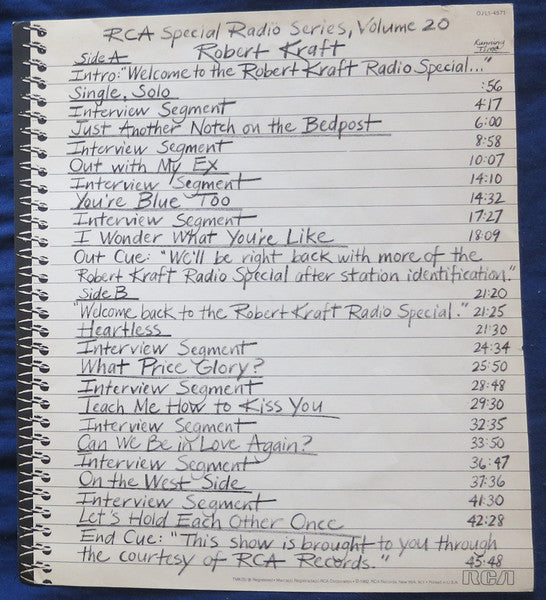 DJL1-4371
RCA Special Radio Series, Volume 20
Robert Kraft
Running Time
Side A
Intro: "Welcome to the Robert Kraft Radio Special..."
Single, Solo :56
Interview Segment 4:17
Just Another Notch on the Bedpost 6:00
Interview Segment 8:58
Out with My Ex 10:07
Interview Segment 14:10
You're Blue Too 14:32
Interview Segment 17:27
I Wonder What You're Like 18:09
Out Cue: "We'll be right back with more of the
Robert Kraft Radio Special after station identification."
Side B 21:20
"Welcome back to the Robert Kraft Radio Special." 21:25
Heartless 21:30
Interview Segment 24:34
What Price Glory? 25:50
Interview Segment 28:48
Teach Me How to Kiss You 29:30
Interview Segment 32:35
Can We Be in Love Again? 33:50
Interview Segment 36:47
On the West Side 37:36
Interview Segment 41:30
Let's Hold Each Other Once 42:28
End Cue: "This show is brought to you through
the courtesy of RCA Records." 45:48
RCA